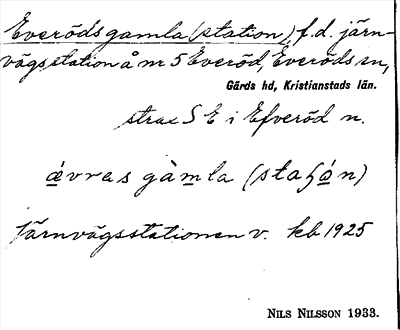 Everöds gamla (station), f.d. järn-
vägsstation å nr 5 Everöd, Everöds sn,
Gärds hd, Kristianstads län.
strax S E i Efveröd n.
ávras gàmla (staʃón)
Järnvägsstationen v. kb 1925
NILS NILSSON 1933.